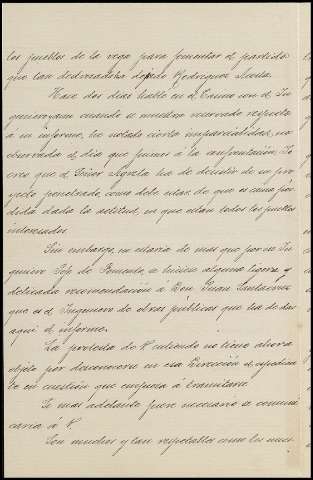 los pueblos de la vega para fomentar el partido
que tan desvencijado dejado Rodriguez Acosta.
Hace dos dias hable en el Casino con el In
geniero y aun cuando se muestra reservado respecto
a su informe, he notado cierta imparcialidad, no
observada el dia que fuimos a la confrontación. Yo
creo que el Señor Agrela ha de desistir de su pro
yecto penetrado como debe estar, de que es causa per
dida dada la actitud, en que estan todos los pueblos
interesados.
Sin embargo no estaria de mas que por un In
geniero Jefe de Fomento, se hiciera alguna ligera y
delicada recomendación á Don Juan
que es el Ingeniero de obras públicas que ha de dar
aqui el informe.
La protesta de V. entiendo no tiene ahora
objeto por desconocerse en esa Dirección el espedien
te en cuestión que empieza á tramitarse.
Si mas adelante fuere necesario se comuni
caria á V.
Son muchos y tan respetables como los nues